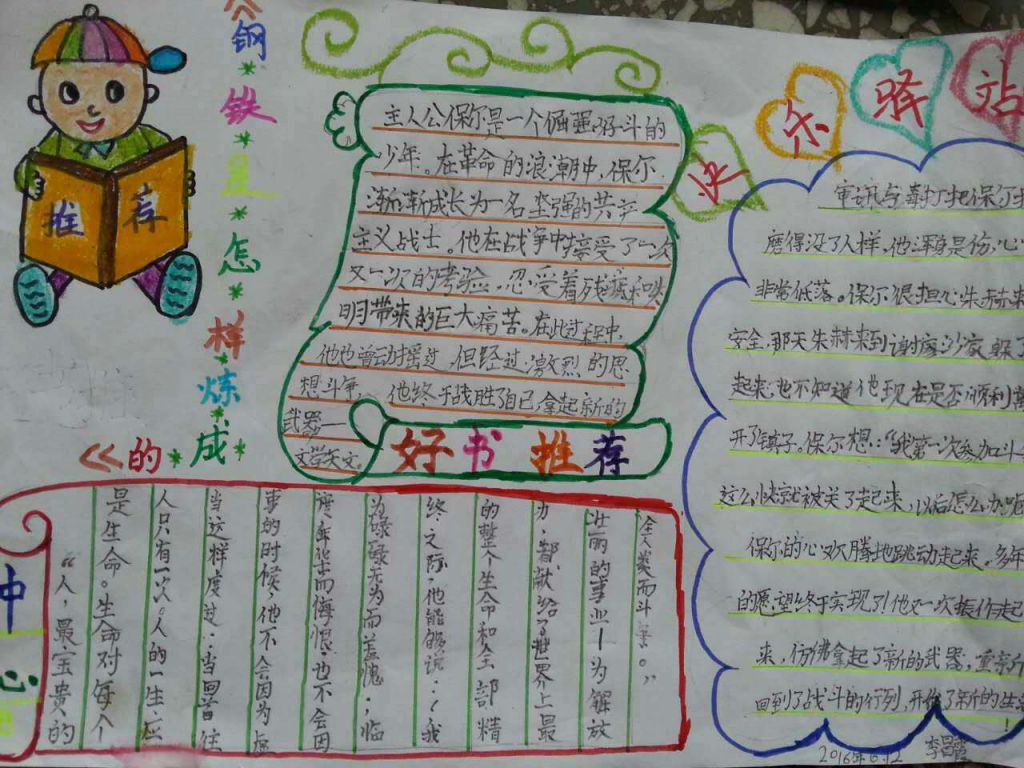 《钢铁是怎样炼成的》
推荐
快乐驿站
主人公保尔是一个倔强、好斗的
少年。在革命的浪潮中，保尔
渐渐成长为一名坚强的共产
主义战士，他在战争中接受了一次
又一次的考验。忍受着残疾和失
明带来的巨大痛苦。在此过程中，
他也曾动摇过，但经过激烈的思
想斗争，他终于战胜了自己，拿起新的
武器——
文学天文。
好书推荐
审讯与毒打把保尔折
磨得没了人样，他浑身是伤，心
非常低落。保尔很担心朱赫来
安全，那天朱赫来到谢廖沙家，躲了
起来，也不知道他现在是否顺利离
开了镇子。保尔想：“我第一次参加斗
这么快就被关了起来，以后怎么办呢
保尔的心欢腾地跳动起来。多年
的愿望终于实现了！他又一次振作起
来，仿佛拿起了新的武器，重新
回到了战斗的行列，开始了新的生
！
中
心
“人，最宝贵的
是生命。生命对每个
人只有一次。人的一生应
当这样度过：当回首往
事的时候，他不会因为虚
度年华而悔恨，也不会因
为碌碌无为而羞愧；临
终之际，他能够说：《我
的整个生命和全部精
力，都献给了世界上最
壮丽的事业——为解放
全人类而斗争。”
2016年6.12